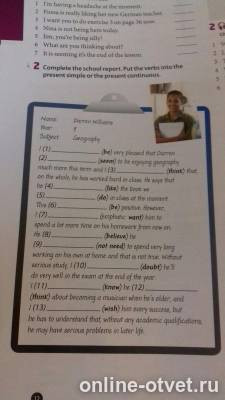 1 I'm having a headache at the moment.
2 Fiona is really liking her new German teacher.
3 I want you to do exercise 3 on page 36 now.
4 Nina is not being here today.
5 Jim, you're being silly!
6 What are you thinking about?
7 It is seeming it's the end of the lesson.
2 Complete the school report. Put the verbs into the
present simple or the present continuous.
Name: Darren Williams
Year: 9
Subject: Geography
I (1) (be) very pleased that Darren
(2) (seem) to be enjoying geography
much more this term and I (3) (think) that
on the whole, he has worked hard in class. He says that
he (4) (like) the book we
(5) (do) in class at the moment.
This (6) (be) positive. However,
I (7) (emphatic: want) him to
spend a lot more time on his homework from now on.
He (8) (believe) he
(9) (not need) to spend very long
working on his own at home and that is not true. Without
serious study, I (10) (doubt) he'll
do very well in the exam at the end of the year.
I (11) (know) he (12)
(think) about becoming a musician when he's older, and
I (13) (wish) him every success, but
he has to understand that, without any academic qualifications,
he may have serious problems in later life.
12
online-otvet.ru